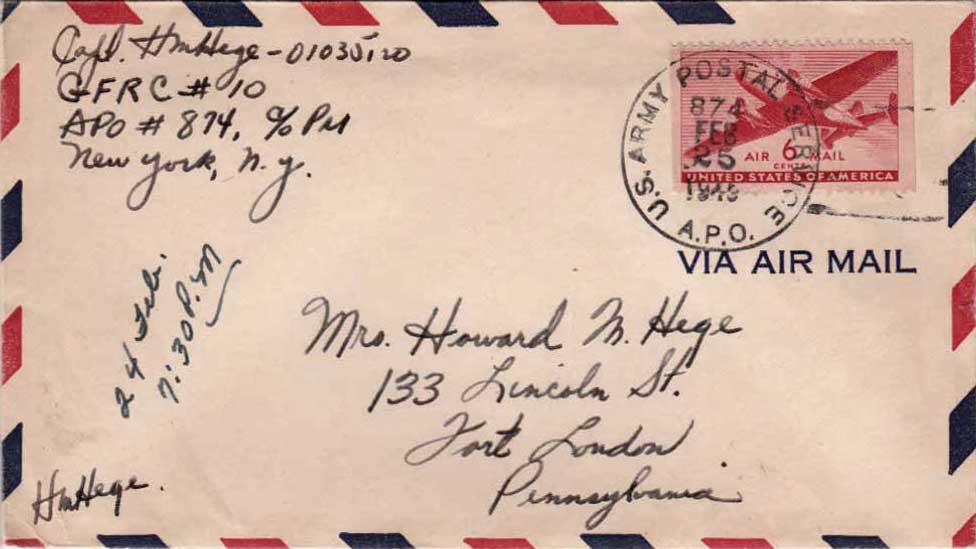 Capt. HMHege - 01035120
GFRC # 10
APO # 874, c/o PM
New York, N.Y.
U.S. ARMY POSTAL SERVICE
A.P.O.
874
FEB
25
AIR 6 MAIL
CENTS
UNITED STATES OF AMERICA
VIA AIR MAIL
24 Feb.
7:30 P.M
Mrs. Howard M. Hege
133 Lincoln St.
Fort Loudon
Pennsylvania
HMHege.